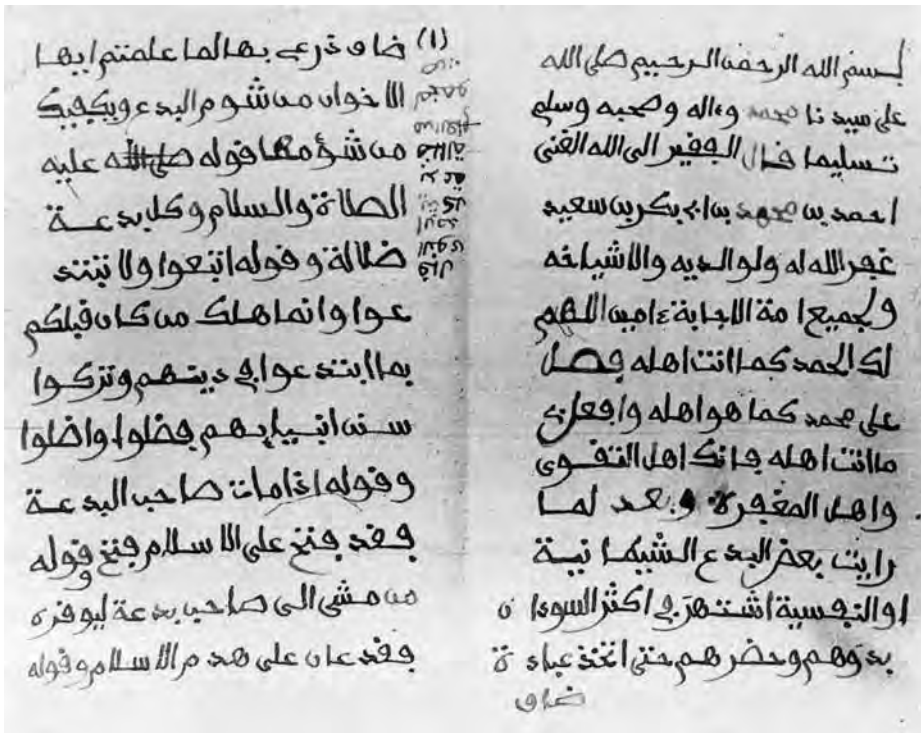 بسم الله الرحمن الرحيم صلى الله
على سيدنا محمد وءاله وصحبه وسلم
تسليما قال الفقير الى الله الغني
احمد بن محمد بن ابي بكر بن سعيد
غفر الله له ولوالديه والاشياخه
ولجميع امة الاجابة ءامين اللهم
لك الحمد كما انت اهله فصل
على محمد كما هو اهله وافعل بي
ما انت اهله فانك اهل التقوى
واهل المغفرة وبعد لما
رايت بعض البدع الشيطانية
او النفسية اشتهر في اكثر السودان
بدوهم وحضرهم حتى اتخذ عبادة
ضاق
(1) ضاق ذرعي بها لما علمتم ايها
الاخوان من شوم البدع ويكفيك
من شؤمها قوله صلى الله عليه
الصلاة والسلام وكل بدعة
ضلالة وقوله اتبعوا ولا تبتد
عوا وانما هلك من كان قبلكم
بما ابتدعوا في دينهم وتركوا
سنن انبيايهم فضلوا واضلوا
وقوله اذا مات صاحب البدعة
فقد فتح على الاسلام فتح وقوله
من مشى الى صاحب بدعة ليوقره
فقد عان على هدم الاسلام وقوله